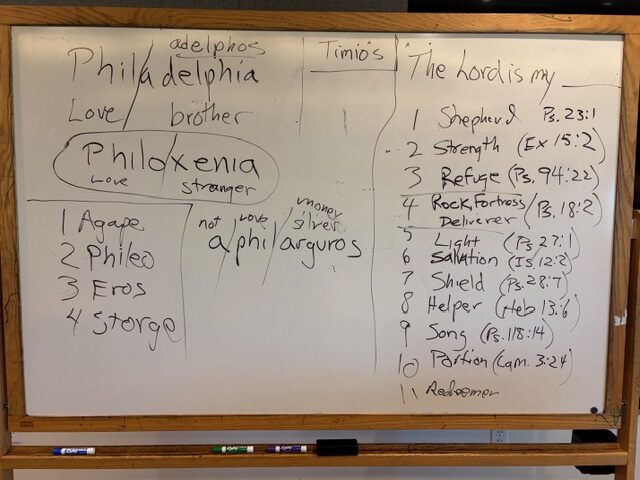 adelphos
Phila/delphia
Love/ brother
Philo/xenia
Love stranger
1 Agape
2 Phileo
3 Eros
4 Storge
not love money
silver
a/phil/arguros
Timio's
"The Lord is my ____
1 Shepherd Ps. 23:1
2 Strength (Ex 15:2)
3 Refuge (Ps. 94:22)
4 Rock, Fortress
Deliverer (Ps. 18:2)
5 Light (Ps 27:1)
6 Salvation (Is 12:2)
7 Shield (Ps. 28:7)
8 Helper (Heb 13:6)
9 Song (Ps. 118:14)
10 Portion (Lam. 3:24)
11 Redeemer
EXPO
EXPO
EXPO